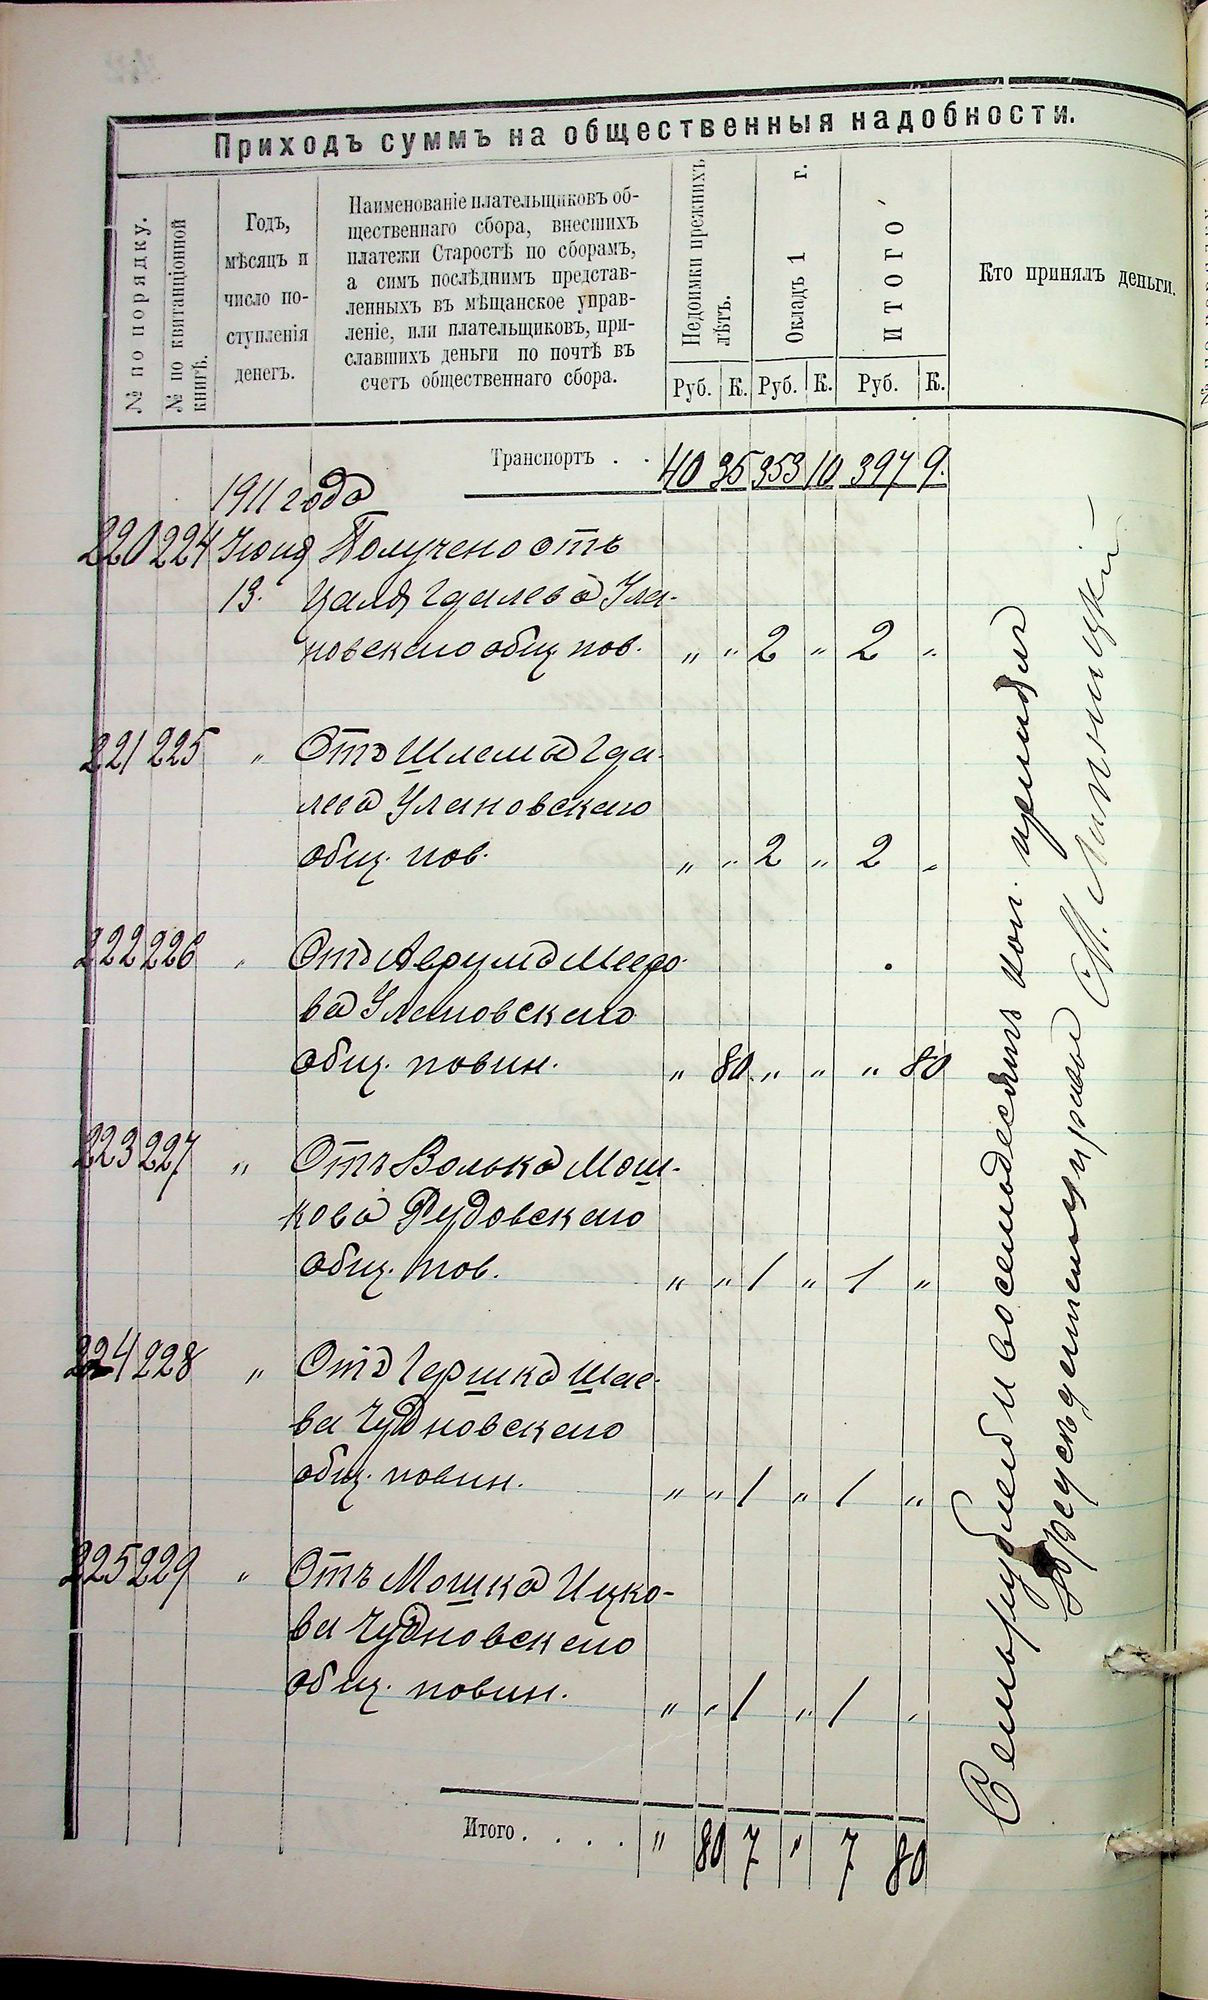 Приходъ суммъ на общественныя надобности.
№ по порядку.
№ по квитанціонной книгѣ.
Годъ,
мѣсяцъ и
число по-
ступленія
денегъ.
Наименованіе плательщиковъ об-
щественнаго сбора, внесшихъ
платежи Старостѣ по сборамъ,
а симъ послѣднимъ представ-
ленныхъ въ мѣщанское управ-
леніе, или плательщиковъ, при-
славшихъ деньги по почтѣ въ
счетъ общественнаго сбора.
Недоимки прежнихъ
лѣтъ.
Окладъ 1 г.
ИТОГО
Кто принялъ деньги.
Руб. К. Руб. К. Руб. К.
Транспортъ . . 40 95 353 10 397 9.
1911 года
220 224 Іюня Получено отъ
13. Цаля Гдалева Ула-
новскаго общ. пов. " " 2 " 2 "
221 225 " Отъ Шлемы Гда-
лева Улановскаго
общ. пов. " " 2 " 2 "
222 226 " Отъ Аврума Мееро-
ва Улановскаго
общ. повин. " 80 " " " 80
223 227 " Отъ Волька Мош-
кова Рудовскаго
общ. пов. " " 1 " 1 "
224 228 " Отъ Гершка Шае-
ва Чудновскаго
общ. повин. " " 1 " 1 "
225 229 " Отъ Мошка Ицко-
ва Чудновскаго
общ. повин. " " 1 " 1 "
Итого . . . . " 80 7 " 7 80
Семь рублей и восемьдесятъ коп. принялъ